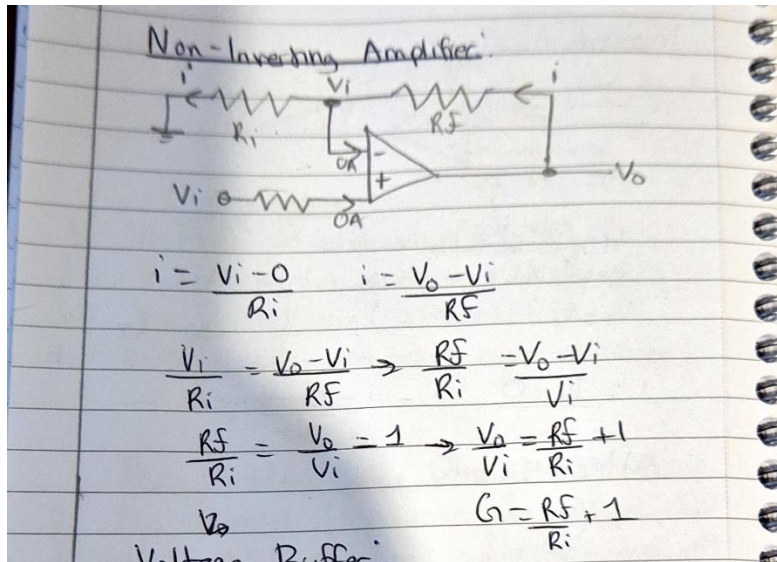 Non-Inverting Amplifier:
i Vi i
Ri Rf
0A -
+ Vo
Vi 0A
i = Vi-0/Ri i = Vo-Vi/Rf
Vi/Ri = Vo-Vi/Rf → Rf/Ri = Vo-Vi/Vi
Rf/Ri = Vo/Vi = 1 → Vo/Vi = Rf/Ri + 1
Vo G = Rf/Ri + 1
Voltage Buffer: